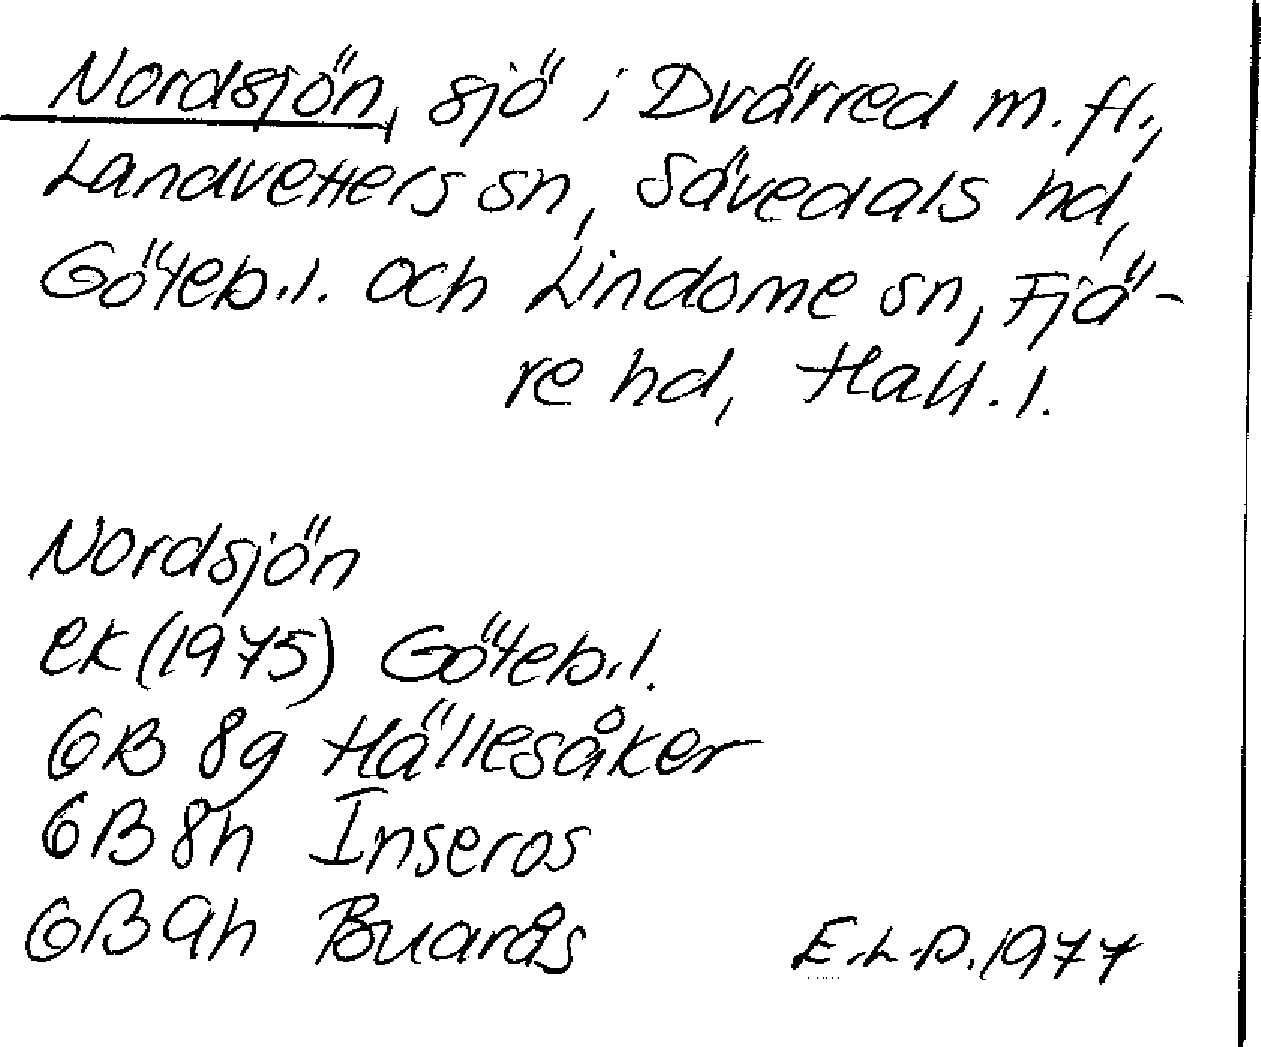 Nordsjön, sjö i Dvärred m. fl.,
Landvetters sn, Sävedals hd,
Göteb.l. och Lindome sn, Fjä-
re hd, Hall. l.
Nordsjön
ek (1975) Göteb.l.
6B 8g Hällesåker
6B 8h Inseros
6B 9h Buarås
E.L.P. 1977